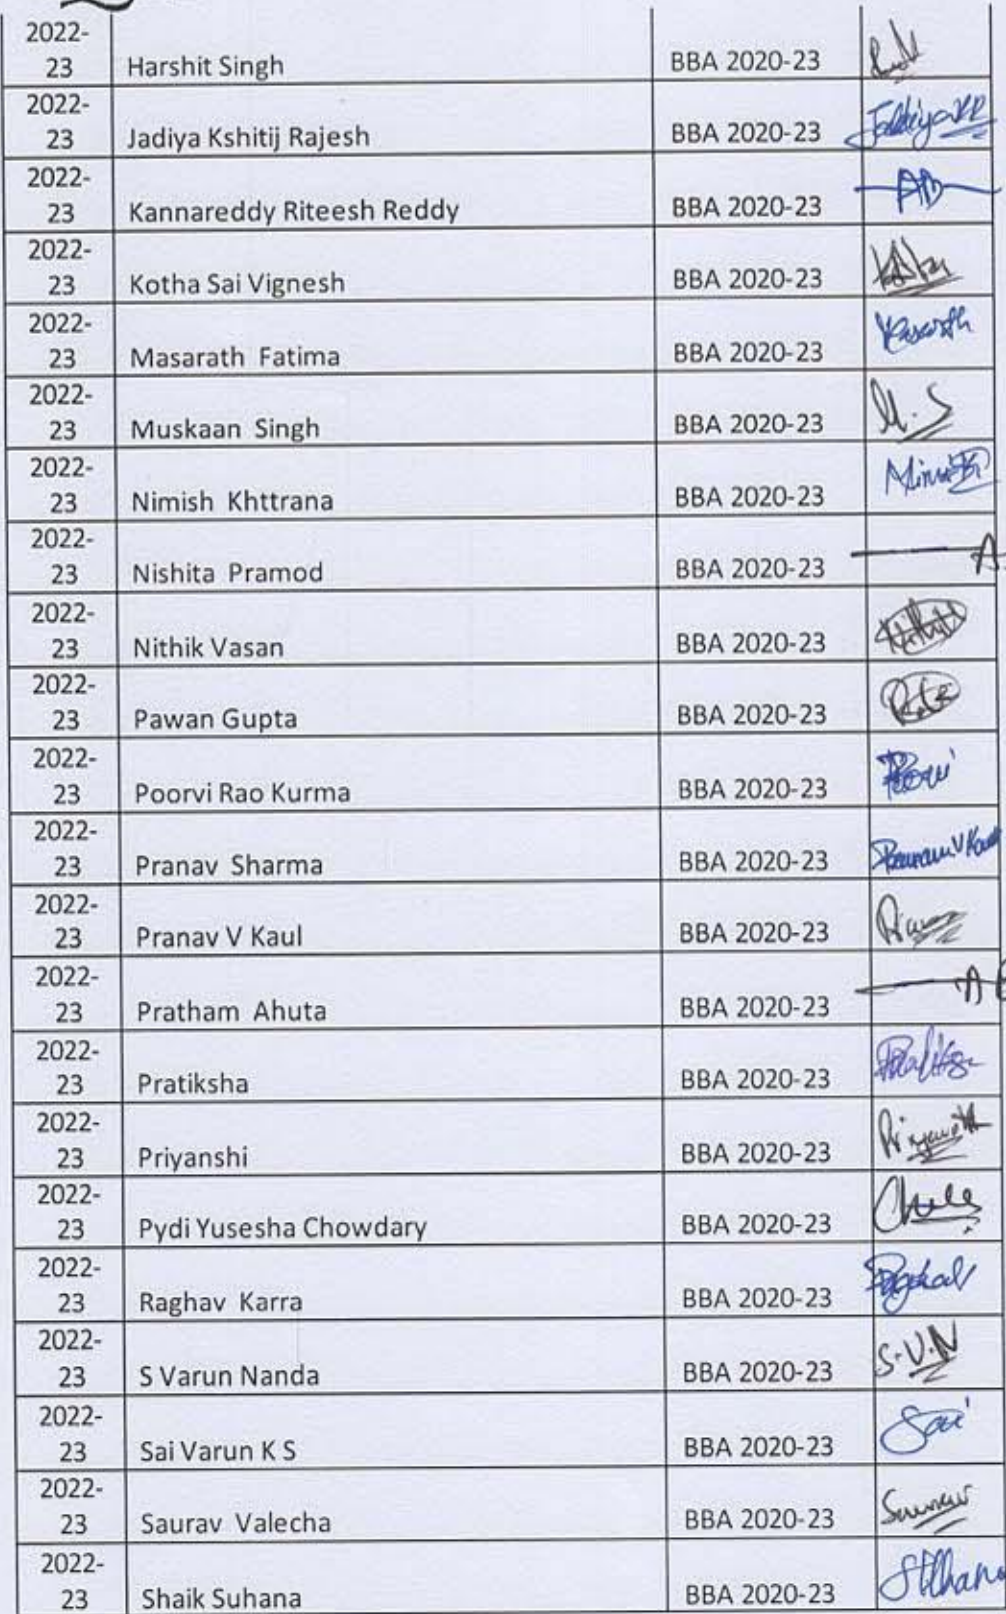 2022-
23 Harshit Singh BBA 2020-23
2022-
23 Jadiya Kshitij Rajesh BBA 2020-23 JadiyaKR
2022-
23 Kannareddy Riteesh Reddy BBA 2020-23 AB
2022-
23 Kotha Sai Vignesh BBA 2020-23
2022-
23 Masarath Fatima BBA 2020-23
2022-
23 Muskaan Singh BBA 2020-23 M.S
2022-
23 Nimish Khttrana BBA 2020-23
2022-
23 Nishita Pramod BBA 2020-23 A
2022-
23 Nithik Vasan BBA 2020-23
2022-
23 Pawan Gupta BBA 2020-23
2022-
23 Poorvi Rao Kurma BBA 2020-23
2022-
23 Pranav Sharma BBA 2020-23
2022-
23 Pranav V Kaul BBA 2020-23
2022-
23 Pratham Ahuta BBA 2020-23 A
2022-
23 Pratiksha BBA 2020-23
2022-
23 Priyanshi BBA 2020-23
2022-
23 Pydi Yusesha Chowdary BBA 2020-23
2022-
23 Raghav Karra BBA 2020-23
2022-
23 S Varun Nanda BBA 2020-23 S.V.N
2022-
23 Sai Varun K S BBA 2020-23 Sai
2022-
23 Saurav Valecha BBA 2020-23
2022-
23 Shaik Suhana BBA 2020-23